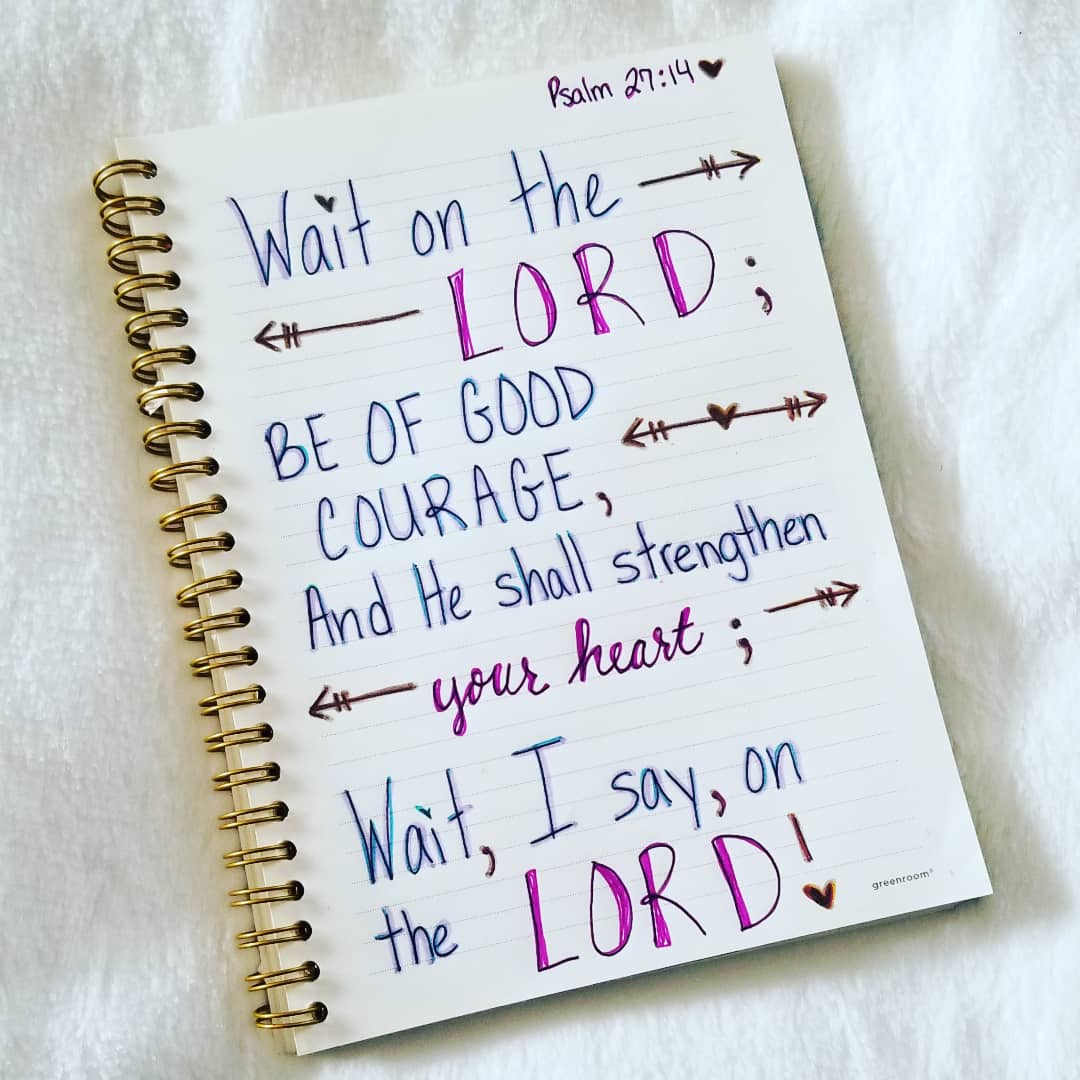 Psalm 27:14
Wait on the
LORD;
BE OF GOOD
COURAGE,
And He shall strengthen
your heart;
Wait, I say, on
the LORD!
greenroom®